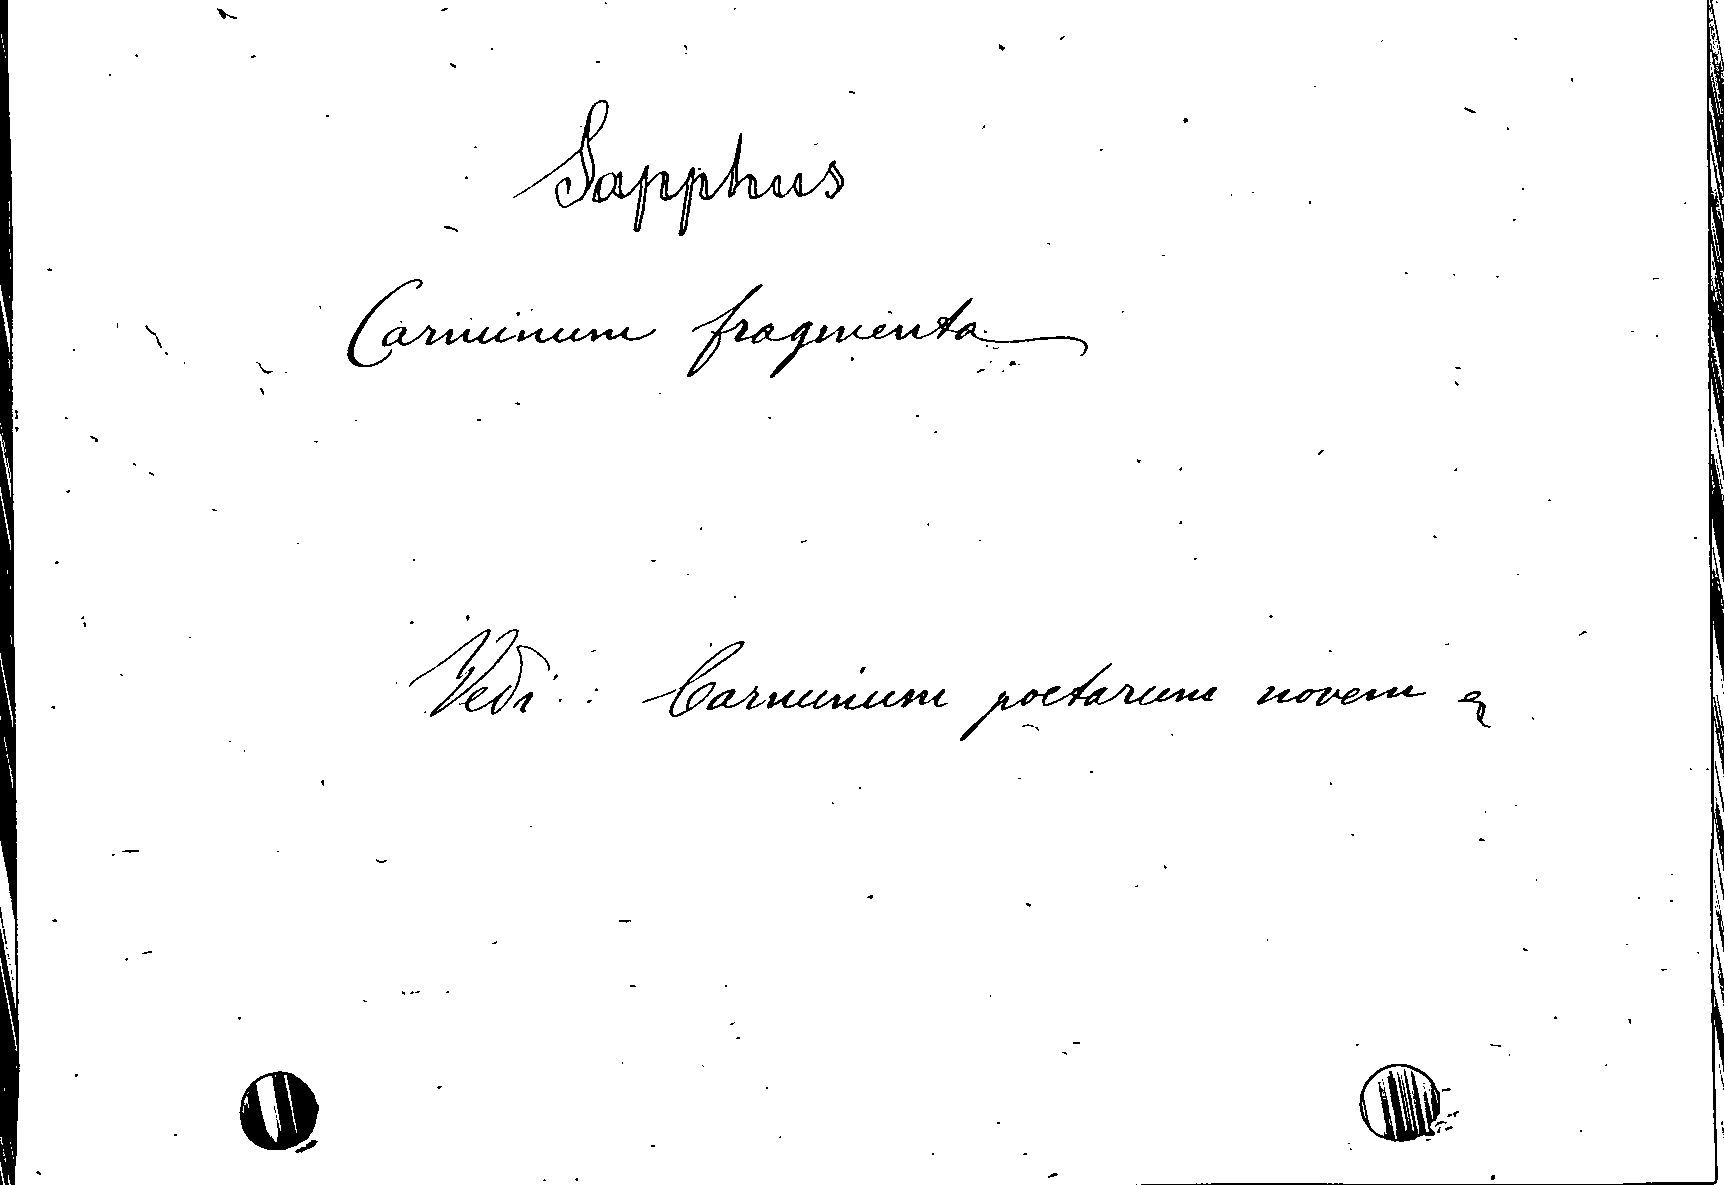 Sapphus
Carminum fragmenta
Vedi: Carminum poetarum novem